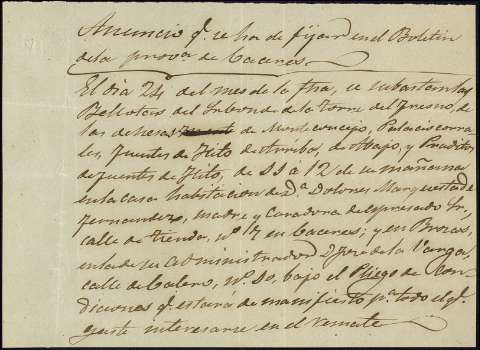 Anuncio q.e se ha de fijar en el Boletin
de la prov.a de Caceres.
El dia 24 del mes de la fha, se subastan las
Bellotas del Sr. de la Torre del Fresno, de
las dehesas de Monteconcejo, Palacio corra
les, Fuentes de Tito de Arriba, de Abajo, y
de Fuentes de Tito, de 11 à 12 de su mañana
en la casa habitacion de D.a Dolores Marquesta de
Fernandez, madre y Curadora del espresado Sr,
calle de tienda, n.o 7 en Caceres; y en Brozas,
en la de su administrador D. Jose de la Vargal,
calle de Calero, n.o 10, bajo el Pliego de Con
diciones q.e estara de manifiesto p.a todo el q.e
guste interesarse en el remate